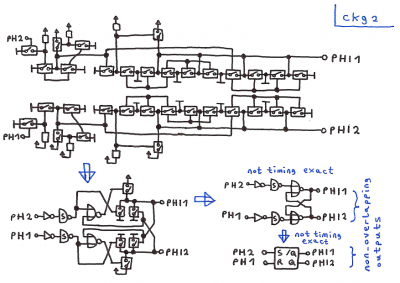 ckg2
PH2
PHI1
PH1
PHI2
not timing exact
PH2
PHI1
PHI1
PH2
S
PH1
S
PH1
S
PHI2
PHI2
not timing
exact
PH2 S/Q PHI1
PH1 R Q PHI2
non-overlapping
outputs